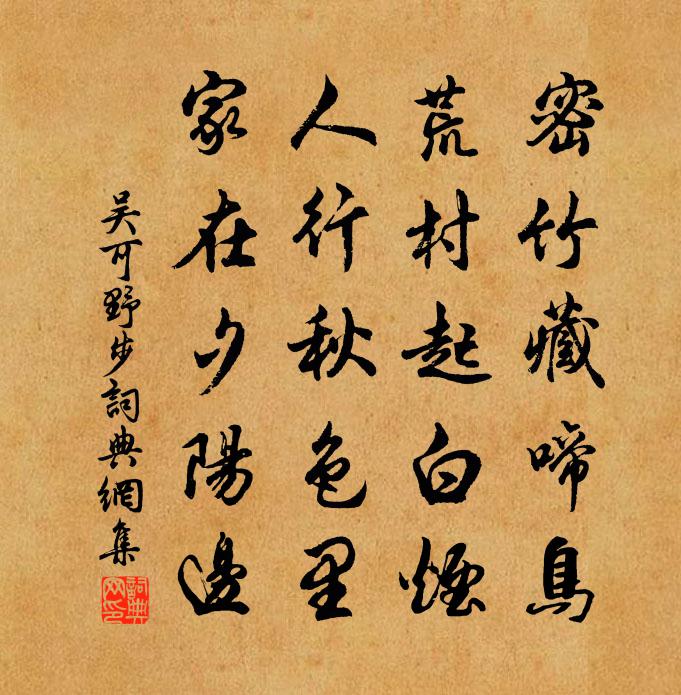 密竹藏啼鳥
荒村起白煙
人行秋色里
家在夕陽邊
吴可野步詞典網集
詞典網印